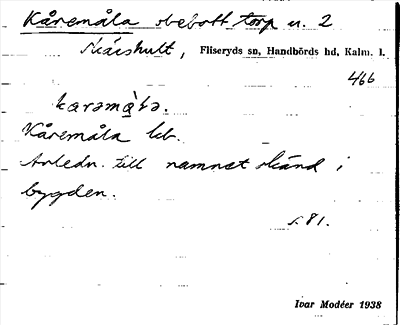 Kåremåla obebott torp u. 2
Skäcshult, Fliseryds sn, Handbörds hd, Kalm. l.
466
karəmà̱la.
Kåremåla kb.
Anledn. till namnet okänd i
bygden.
s. 81.
Ivar Modéer 1938